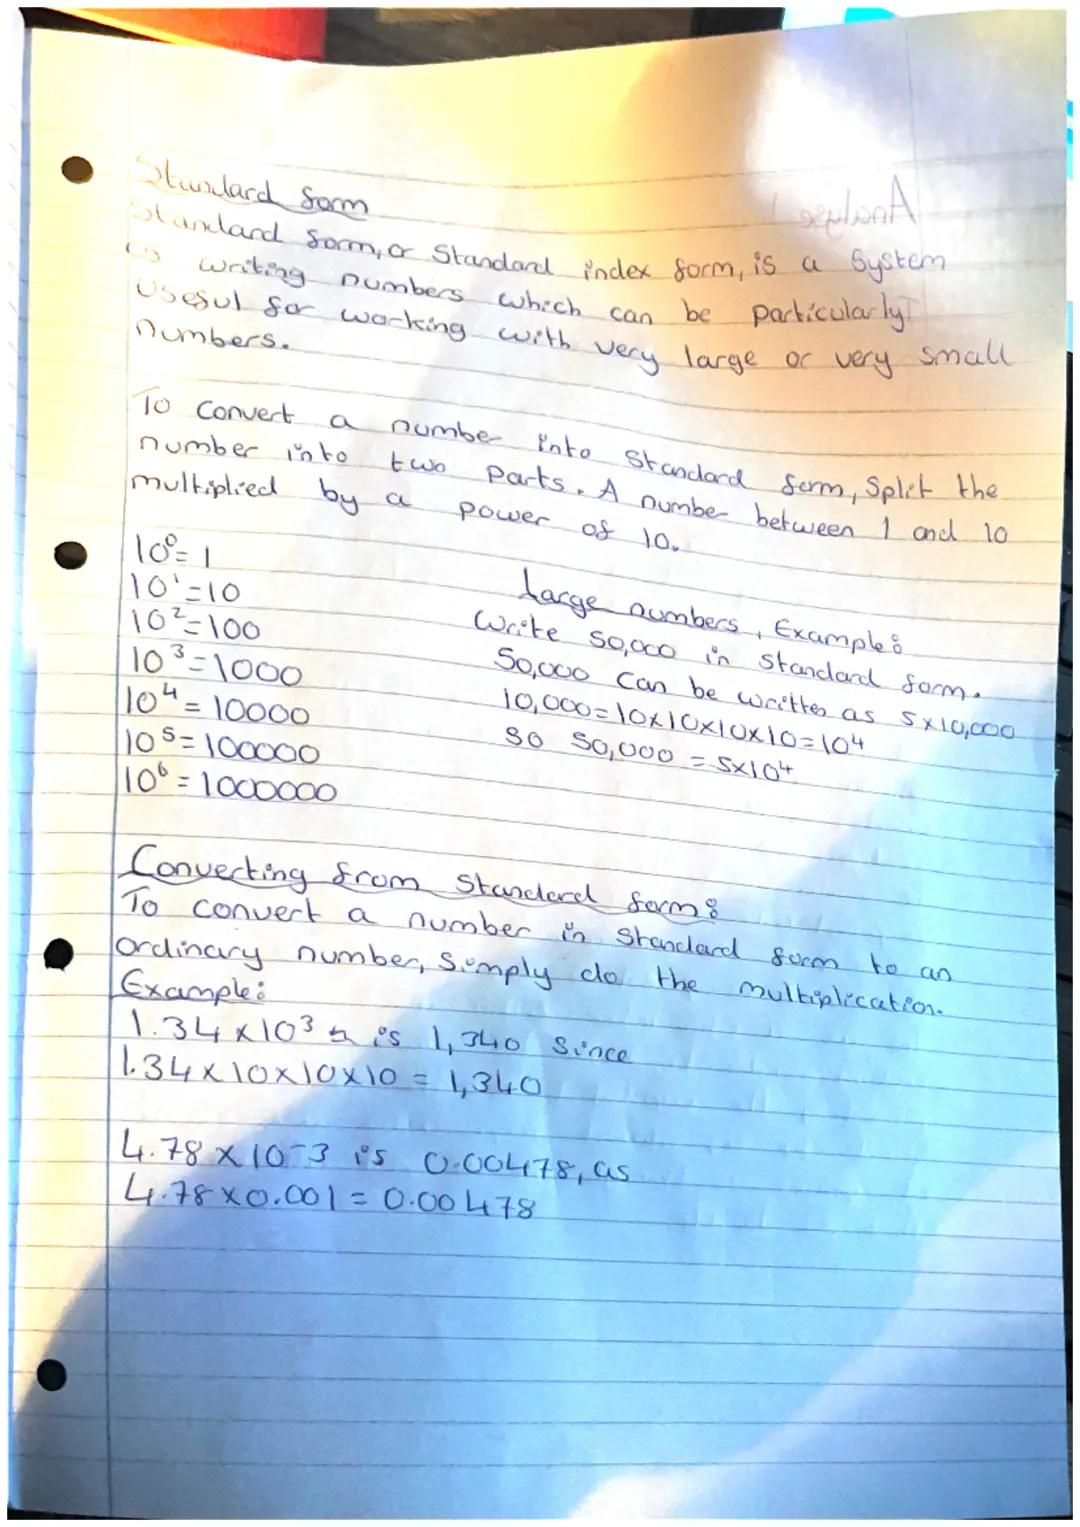 Standard form
Analyse !
Standard form, or Standard index form, is a System
of writing numbers which can be particularly
useful for working with very large or very small
numbers.
To convert a number into Standard form, Split the
number into two parts. A number between 1 and 10
multiplied by a power of 10.
10⁰=1
10¹=10
10²=100
10³=1000
10⁴=10000
10⁵=100000
10⁶=1000000
Large numbers, Example:
Write 50,000 in Standard form.
50,000 can be written as 5x10,000
10,000=10x10x10x10=10⁴
So 50,000 = 5x10⁴
Converting from Standard form:
To convert a number in Standard form to an
ordinary number, Simply do the multiplication.
Example:
1.34x10³ is 1,340 Since
1.34x10x10x10 = 1,340
4.78x10⁻³ is 0.00478, as
4.78x0.001=0.00478